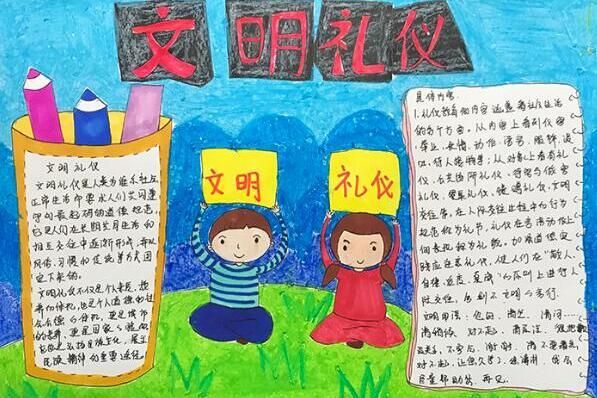 文明礼仪
文明 礼仪
文明
礼仪
文明礼仪是人类为维系社会
正常生活而要求人们共同遵
守的最起码的道德规范，
它是人们在长期共同生活和
相互交往中逐渐形成，并以
风俗、习惯和传统等方式固
定下来的。
文明礼仪不仅是个人素质、教
具体内容
1.礼仪教育的内容涵盖着社会生活
的各个方面。从内容上看有仪容、
举止、表情、服饰、谈
吐、待人接物等；从对象上看有个人礼
仪、公共场所礼仪、待客与做客
礼仪、餐桌礼仪、馈赠礼仪、文明
交往等。在人际交往过程中的行为
规范称为礼节，礼仪在言语动作上
的表现称为礼貌。加强道德实
践应注意礼仪，使人们在“敬人、
自律、适度、真诚”的原则上进行人
际交往，告别不文明的言行。
文明用语：您好、请坐、
对不起、
不客气、谢谢、
再见。